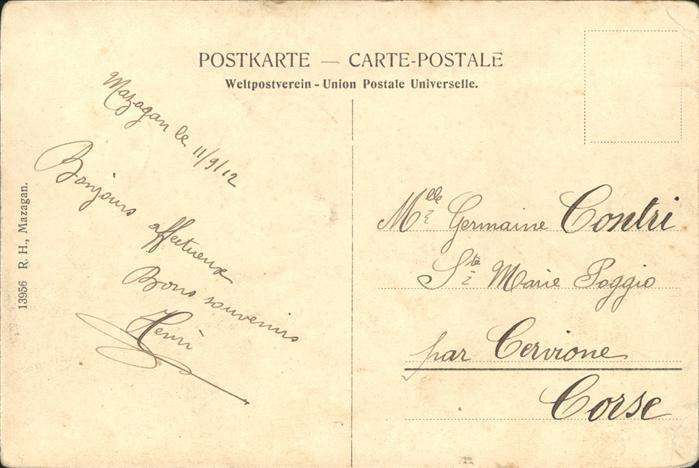 POSTKARTE — CARTE-POSTALE
Weltpostverein - Union Postale Universelle.
Mazagan le 11/9/12
Bonjours
affectueux
Bons souvenirs
Henri
13956 R. H., Mazagan.
Mlle Germaine Contri
Ste Marie Poggio
par Cervione
Corse